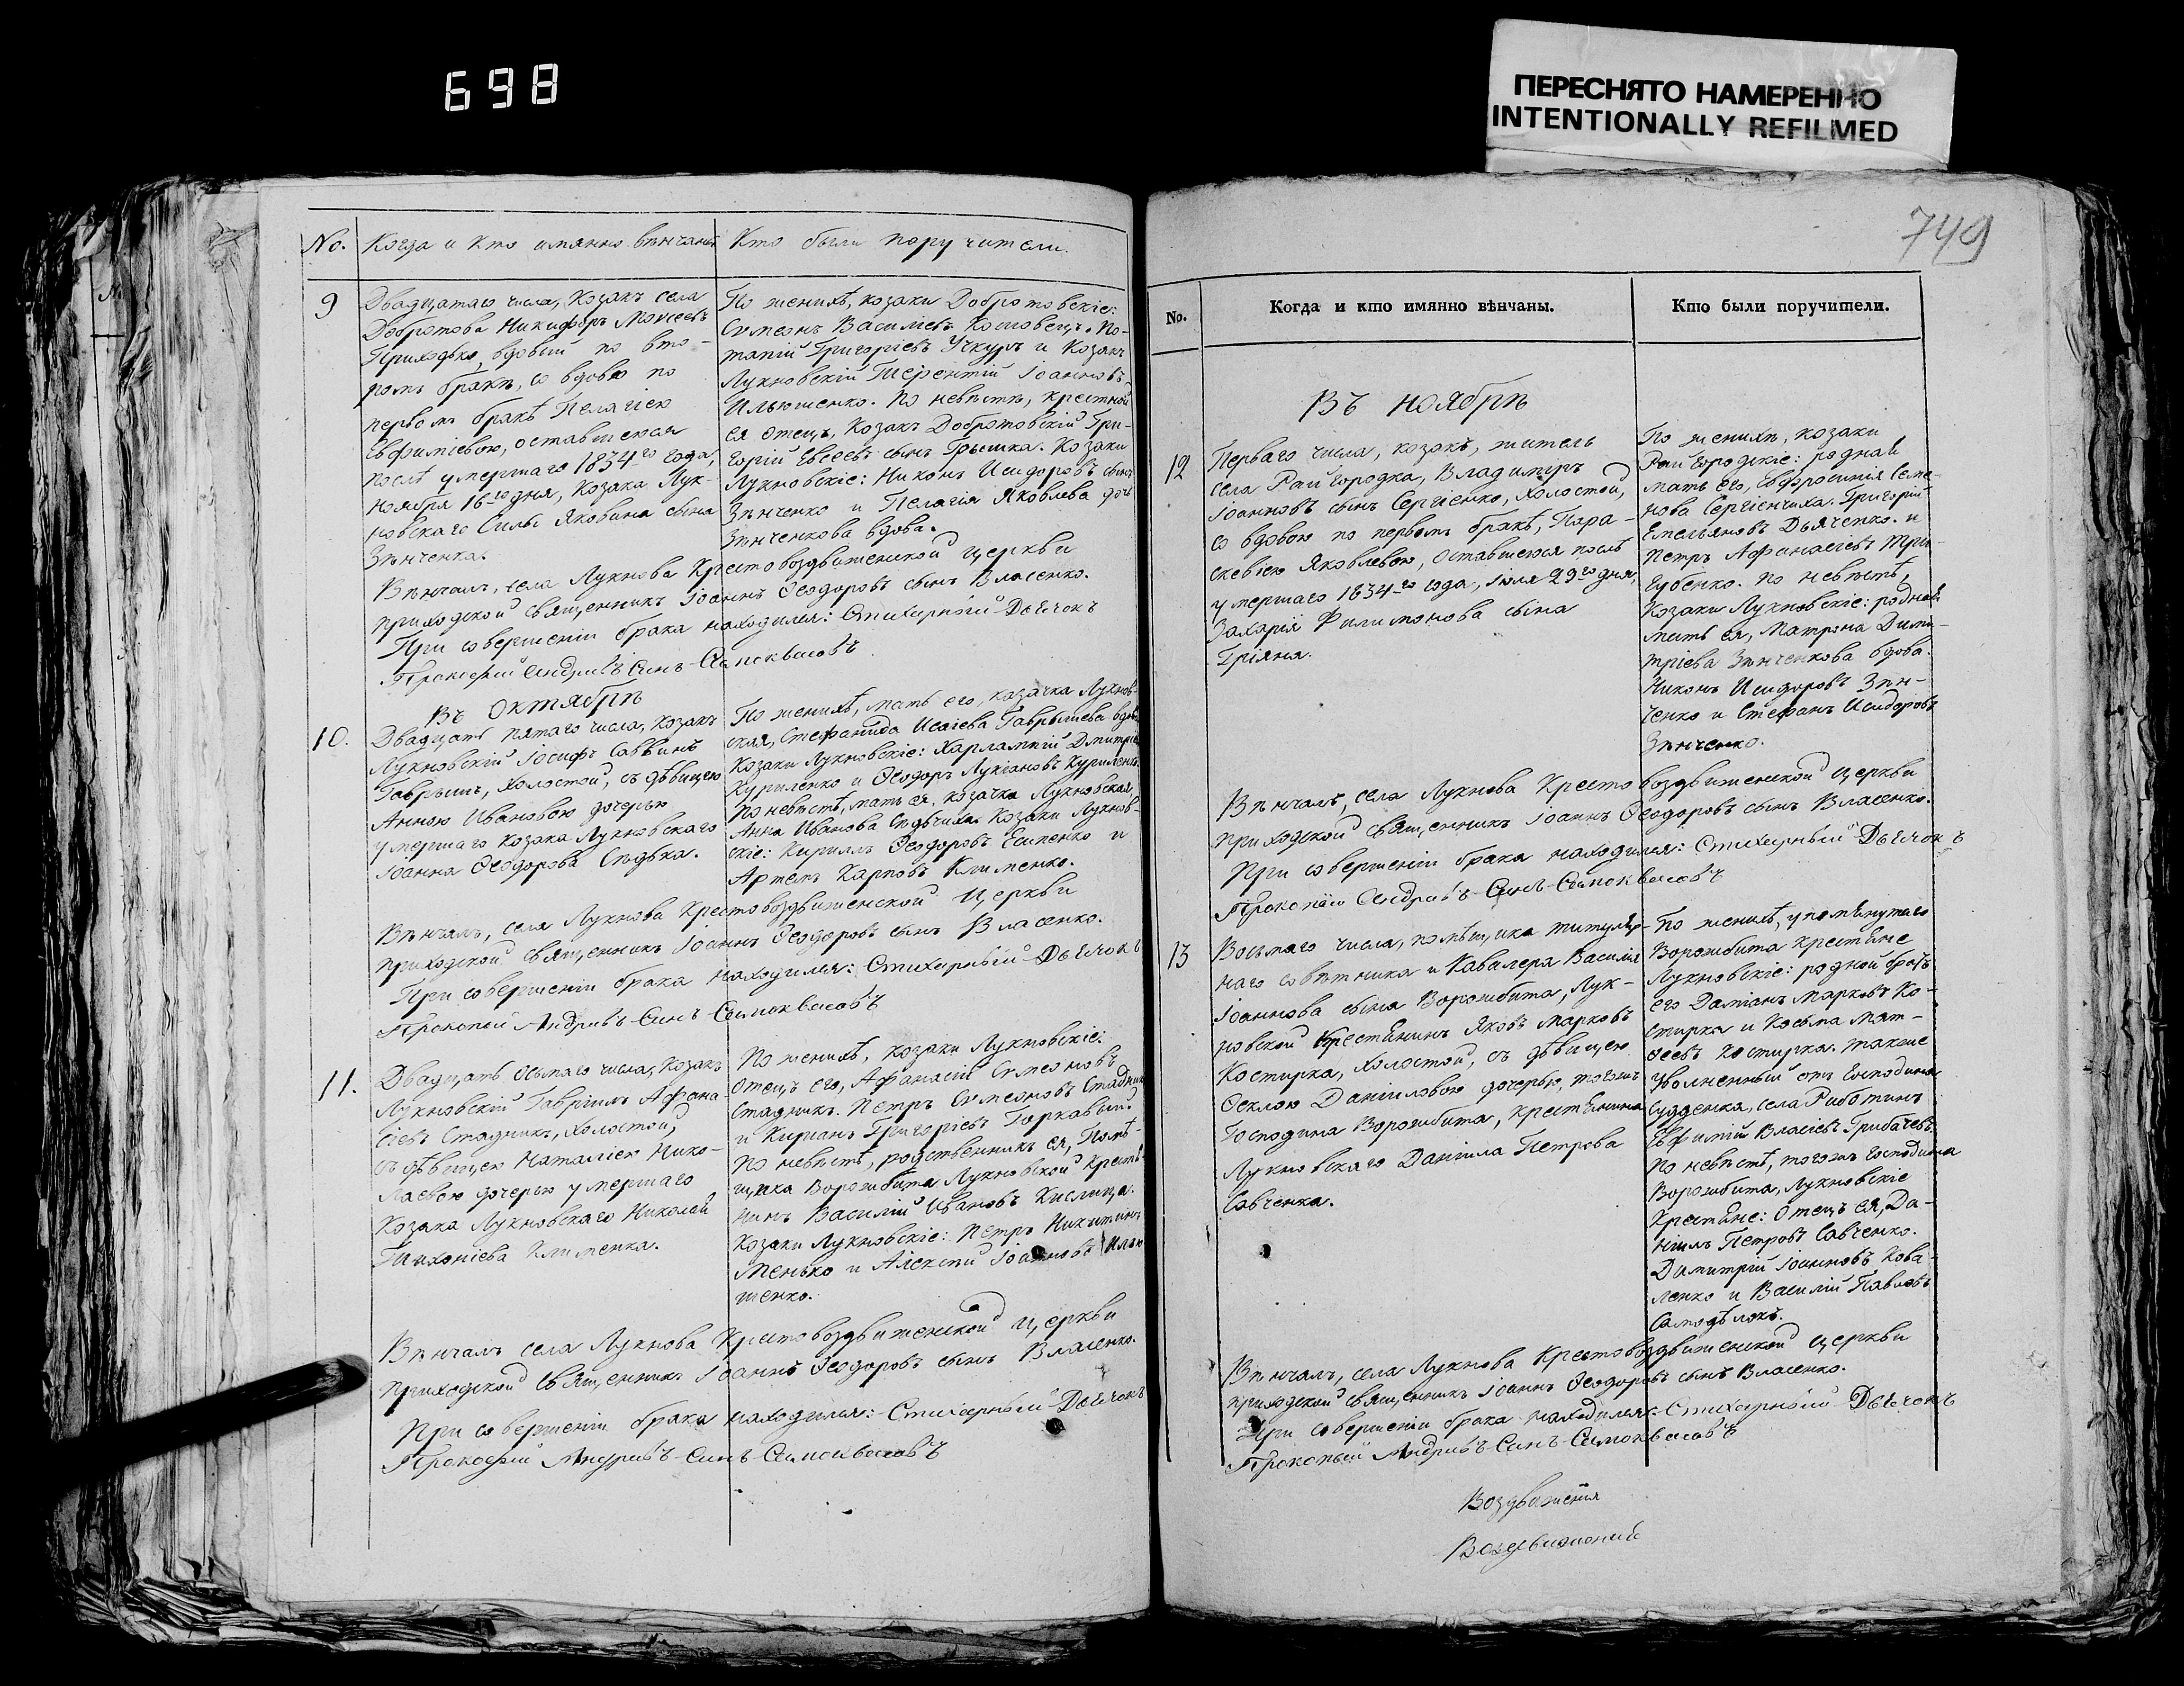 698
ПЕРЕСНЯТО НАМЕРЕННО
INTENTIONALLY REFILMED
749
No. Когда и кто имянно вѣнчаны Кто были поручители.
9
Двадцатаго числа, козакъ села
Добротова Никифоръ Моѵсеевъ
Приходько, вдовый по вто-
ромъ бракѣ, со вдовою по
первомъ бракѣ Пелагіею
Евфиміевою, оставшеюся
послѣ умершаго 1834го года,
Ноября 16го дня, козака Лук-
новскаго Силы Яковина сына
Зѣнченка.
По женихѣ, козаки Добротовскіе:
Сѵмеонъ Василіевъ Костовецъ. По-
тапій Григоріевъ Учкуръ и козакъ
Лукновскій Терентій Іоанновъ
Ильюшенко. По невѣстѣ, крестной
ея отецъ, козакъ Добротовскій Гри-
горій Евсеевъ сынъ Грышка. Козаки
Лукновскіе: Никонъ Исидоровъ сынъ
Зѣнченко и Пелагія Яковлева дочь
Зѣнченкова вдова.
Вѣнчалъ, села Лукнова Крестовоздвиженской церкви
приходской священникъ Іоаннъ Ѳеодоровъ сынъ Власенко.
При совершеніи брака находился: Стихарный Дьячокъ
Прокофій Андріивъ Синъ Самоквасовъ
Въ Октябрѣ
10.
Двадцать пятаго числа, козакъ
Лукновскій Іосифъ Саввинъ
Гаврышъ, холостой, съ дѣвицею
Анною Ивановою дочерью
умершаго козака Лукновскаго
Іоанна Ѳеодорова Слѣдька.
По женихѣ, мать его, козачка Лукнов-
ская, Стефанида Исаіева Гаврышева вдова
Козаки Лукновскіе: Харлампій Дмитріевъ
Куриленко и Ѳеодоръ Лукіановъ Куриленко.
По невѣстѣ, мать ея, козачка Лукновская,
Анна Иванова Слѣдчиха. Козаки Лукнов-
скіе: Кириллъ Ѳеодоровъ Есипенко и
Артемъ Карповъ Клименко.
Вѣнчалъ, села Лукнова Крестовоздвиженской церкви
приходской священникъ Іоаннъ Ѳеодоровъ сынъ Власенко.
При совершеніи брака находился: Стихарный Дьячокъ
Прокопій Андріивъ Синъ Самоквасовъ
11.
Двадцать осьмаго числа, козакъ
Лукновскій Гавріилъ Афана-
сіевъ Стадникъ, холостой,
съ дѣвицею Наталіею Нико-
лаевою дочерью умершаго
козака Лукновскаго Николай
Тихоніева Клименка.
По женихѣ, козаки Лукновскіе:
Отецъ его, Афанасій Сѵмеоновъ
Стадникъ. Петръ Сѵмеоновъ Стадникъ
и Киріанъ Григоріевъ Горкавый.
По невѣстѣ, родственникъ ея, Помѣ-
щика Ворожбита Лукновской крестья-
нинъ Василій Ивановъ Кислица.
Козаки Лукновскіе: Петръ Никитинъ
Менько и Алексій Іоанновъ Илью-
шенко.
Вѣнчалъ села Лукнова Крестовоздвиженской церкви
приходской священникъ Іоаннъ Ѳеодоровъ сынъ Власенко.
При совершеніи брака находился: Стихарный Дьячокъ
Прокофій Андріивъ Синъ Самоквасовъ
No. Когда и кто имянно вѣнчаны. Кто были поручители.
Въ Ноябрѣ
12
Перваго числа, козакъ, житель
села Рай городка, Владиміръ
Іоанновъ сынъ Сергіенко, холостой,
со вдовою по первомъ бракѣ, Пара-
скевіею Яковлевою, оставшеюся послѣ
умершаго 1834го года, Іюля 29го дня,
Захарія Филимонова сына
Гріяня.
По женихѣ, козаки
Рай городскіе: родная
мать его, Евфросинія Семе-
нова Сергіенчиха. Григорій
Емельяновъ Дьяченко. и
Петръ Афанасіевъ Три-
губенко. По невѣстѣ,
Козаки Лукновскіе: родная
мать ея, Матрона Дими-
тріева Зѣнченкова вдова.
Никонъ Исидоровъ Зѣн-
ченко и Стефанъ Исидоровъ
Зѣнченко.
Вѣнчалъ, села Лукнова Крестовоздвиженской церкви
приходской священникъ Іоаннъ Ѳеодоровъ сынъ Власенко.
При совершеніи брака находился: Стихарный Дьячокъ
Прокопій Андріивъ Синъ Самоквасовъ
13
Восьмаго числа, помѣщика титуляр-
наго совѣтника и Кавалера Василія
Іоаннова сына Ворожбита, Лук-
новской крестьянинъ Яковъ Марковъ
Костирка, холостой, съ дѣвицею
Ѳеклою Даніиловою дочерью, тогожъ
Господина Ворожбита, крестьянина
Лукновскаго Даніила Петрова
Савченка.
По женихѣ, упомянутаго
Ворожбита крестьяне
Лукновскіе: родной братъ
его Даміанъ Марковъ Ко-
стирка и Косьма Мат-
ѳеевъ Костирка. также
уволненный отъ Господина
Судденка, села Риботинъ
Евфимій Власіевъ Грибачевъ.
По невѣстѣ, тогожъ Господина
Ворожбита, Лукновскіе
Крестьяне: Отецъ ея, Да-
ніилъ Петровъ Савченко.
Димитрій Іоанновъ Кова-
ленко и Василій Павловъ
Самодѣлокъ.
Вѣнчалъ, села Лукнова Крестовоздвиженской церкви
приходской священникъ Іоаннъ Ѳеодоровъ сынъ Власенко.
При совершеніи брака находился: Стихарный Дьячокъ
Прокопій Андріивъ Синъ Самоквасовъ
Воздвиженія